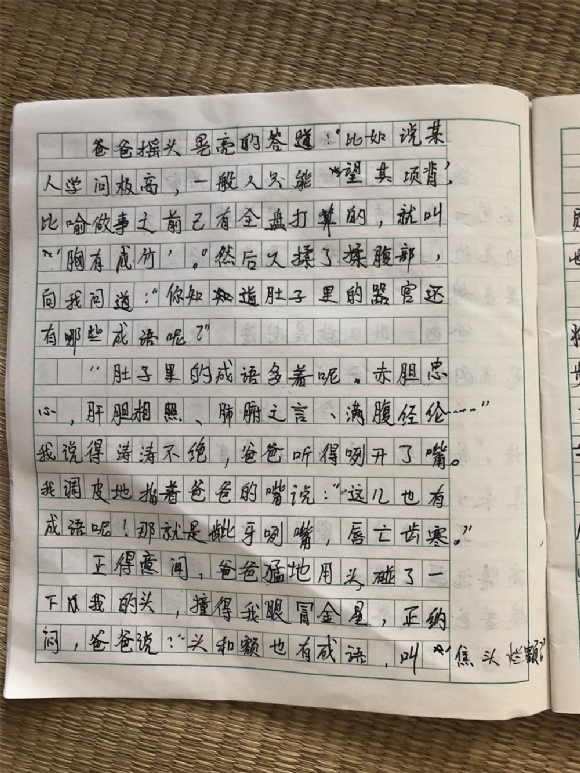 爸爸摇头晃亮的答道：“比如说某
人学问极高，一般人只能“望其项背’，
比喻做事之前已有全盘打算的，就叫
“‘胸有成竹’。”然后又揉了揉腹部，
向我问道：“你知道肚子里的器官还
有哪些成语呢？”
“肚子里的成语多着呢。赤胆忠
心，肝胆相照、肺腑之言、满腹经纶……”
我说得涛涛不绝，爸爸听得咧开了嘴。
我调皮地指着爸爸的嘴说：“这儿也有
成语呢！那就是龇牙咧嘴，唇亡齿寒。”
正得意间，爸爸猛地用头碰了一
下我的头，撞得我眼冒金星，正纳
闷，爸爸说：“头和额也有成语，叫“‘焦头烂额’”